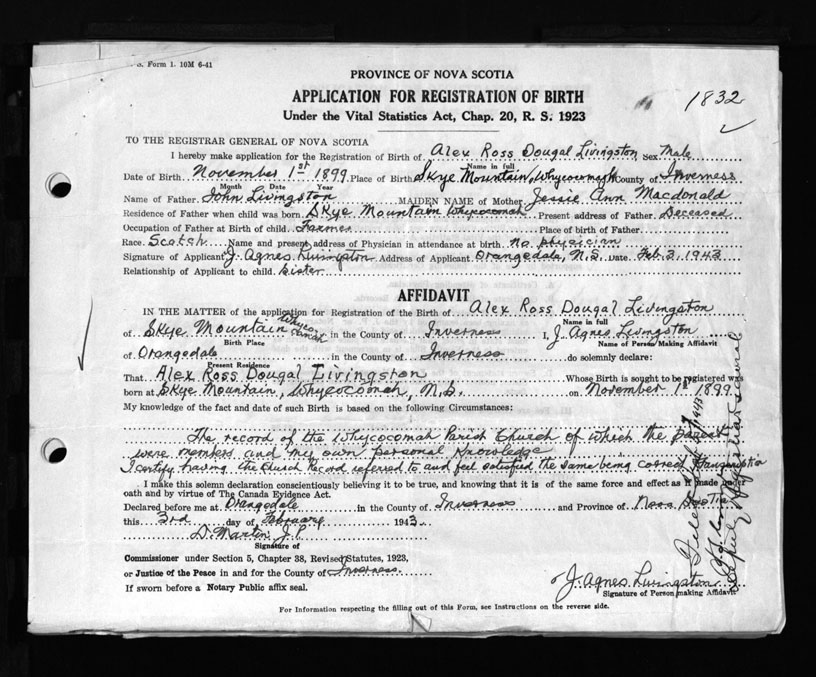 Form 1. 10M 6-41
PROVINCE OF NOVA SCOTIA
APPLICATION FOR REGISTRATION OF BIRTH
1832
Under the Vital Statistics Act, Chap. 20, R. S. 1923
TO THE REGISTRAR GENERAL OF NOVA SCOTIA
I hereby make application for the Registration of Birth of Alex Ross Dougal Livingston Sex Male
Name in full
Date of Birth November 1st 1899 Place of Birth Skye Mountain, Whycocomagh County of Inverness
Month Date Year
Name of Father John Livingston MAIDEN NAME of Mother Jessie Ann Macdonald
Residence of Father when child was born Skye Mountain Whycocomah Present address of Father Deceased
Occupation of Father at Birth of child Farmer Place of Birth of Father
Race Scotch Name and present address of Physician in attendance at birth no physician
Signature of Applicant J. Agnes Livingston Address of Applicant Orangedale, N.S. Date Feb. 3. 1943
Relationship of Applicant to child Sister
AFFIDAVIT
IN THE MATTER of the application for Registration of the Birth of Alex Ross Dougal Livingston
Name in full
of Skye Mountain Whycocomah in the County of Inverness I, J Agnes Livingston
Birth Place Name of Person Making Affidavit
of Orangedale in the County of Inverness do solemnly declare:
Present Residence
That Alex Ross Dougal Livingston Whose Birth is sought to be registered was
born at Skye Mountain, Whycocomah, N.S. on November 1st 1899
My knowledge of the fact and date of such Birth is based on the following Circumstances:
The record of the Whycocomah Parish Church of which the parents
were members and my own personal knowledge
I certify having the Church Record referred to and feel satisfied the same being correct
I make this solemn declaration conscientiously believing it to be true, and knowing that it is of the same force and effect as if made under
oath and by virtue of The Canada Evidence Act.
Declared before me at Orangedale in the County of Inverness and Province of Nova Scotia
this 3rd day of February 1943
D. Martin J.P.
Signature of
Commissioner under Section 5, Chapter 38, Revised Statutes, 1923,
or Justice of the Peace in and for the County of Inverness
If sworn before a Notary Public affix seal.
J. Agnes Livingston
Signature of Person making Affidavit
For Information respecting the filling out of this Form, see Instructions on the reverse side.